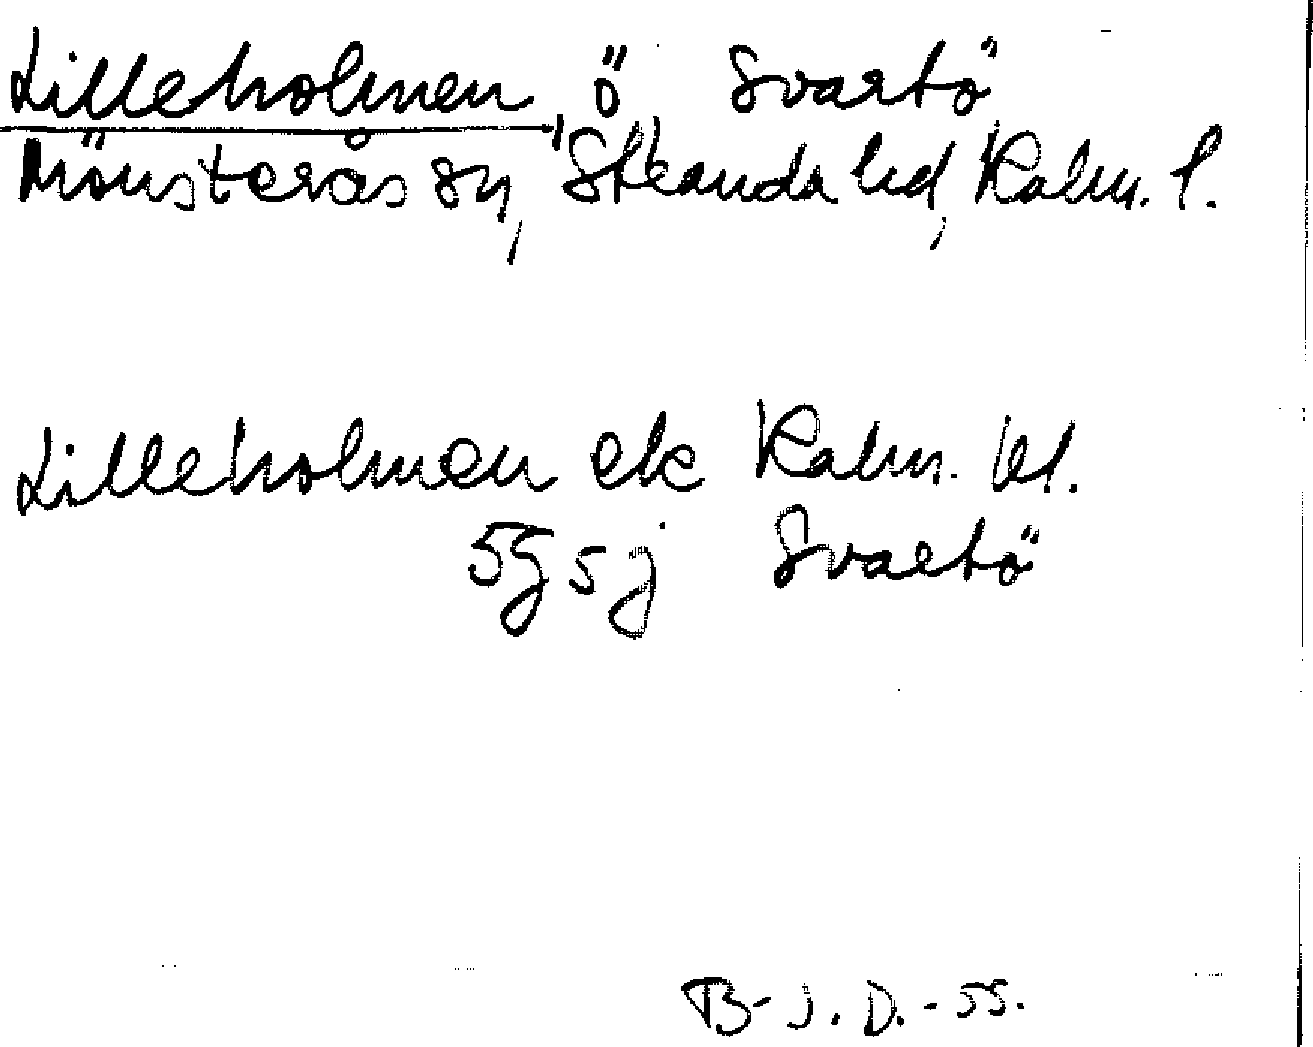 Lilleholmen, ö Svartö
Mönsterås sn, Stranda hd, Kalm. l.
Lilleholmen ek Kalm. bl.
5g5j Svartö
B-J. D. - 55.